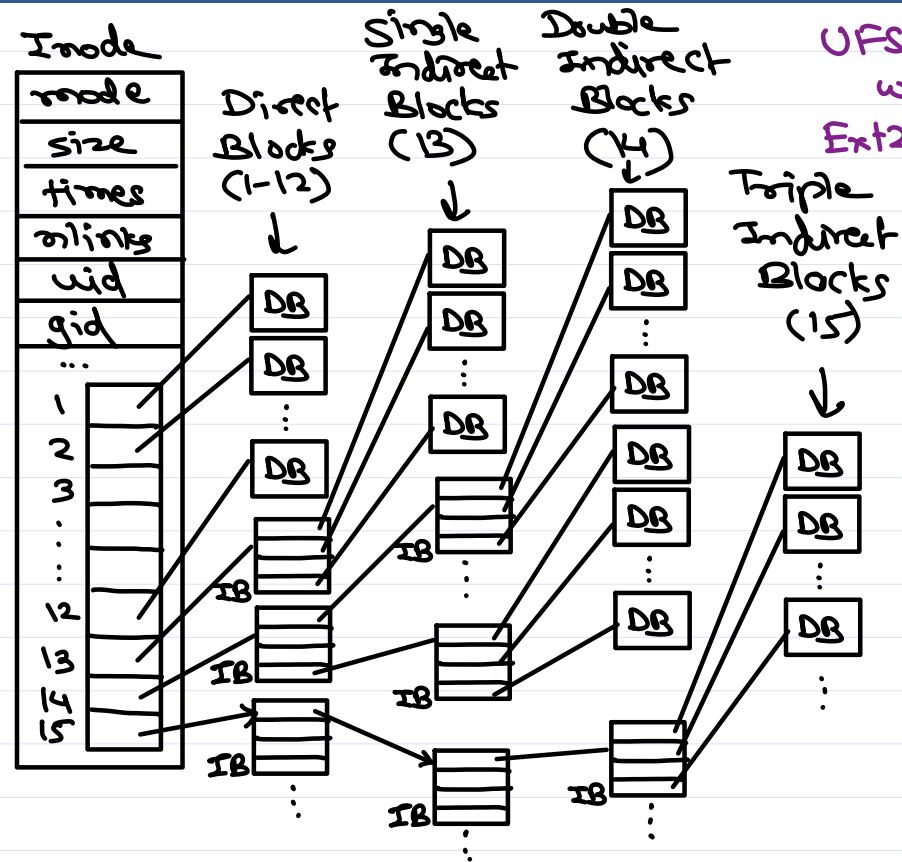 Inode
mode
size
times
nlinks
uid
gid
...
1
2
3
12
13
14
15
Direct
Blocks
(1-12)
DB
DB
DB
IB
IB
IB
Single
Indirect
Blocks
(13)
DB
DB
DB
IB
IB
IB
Double
Indirect
Blocks
(14)
DB
DB
DB
DB
DB
DB
IB
UFS
w
Ext2
Triple
Indirect
Blocks
(15)
DB
DB
DB